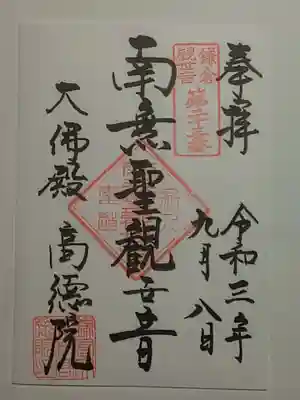 奉拝
令和三年
九月八日
鎌倉
観世音
第二十三番
南無聖観世音
大佛殿
高德院